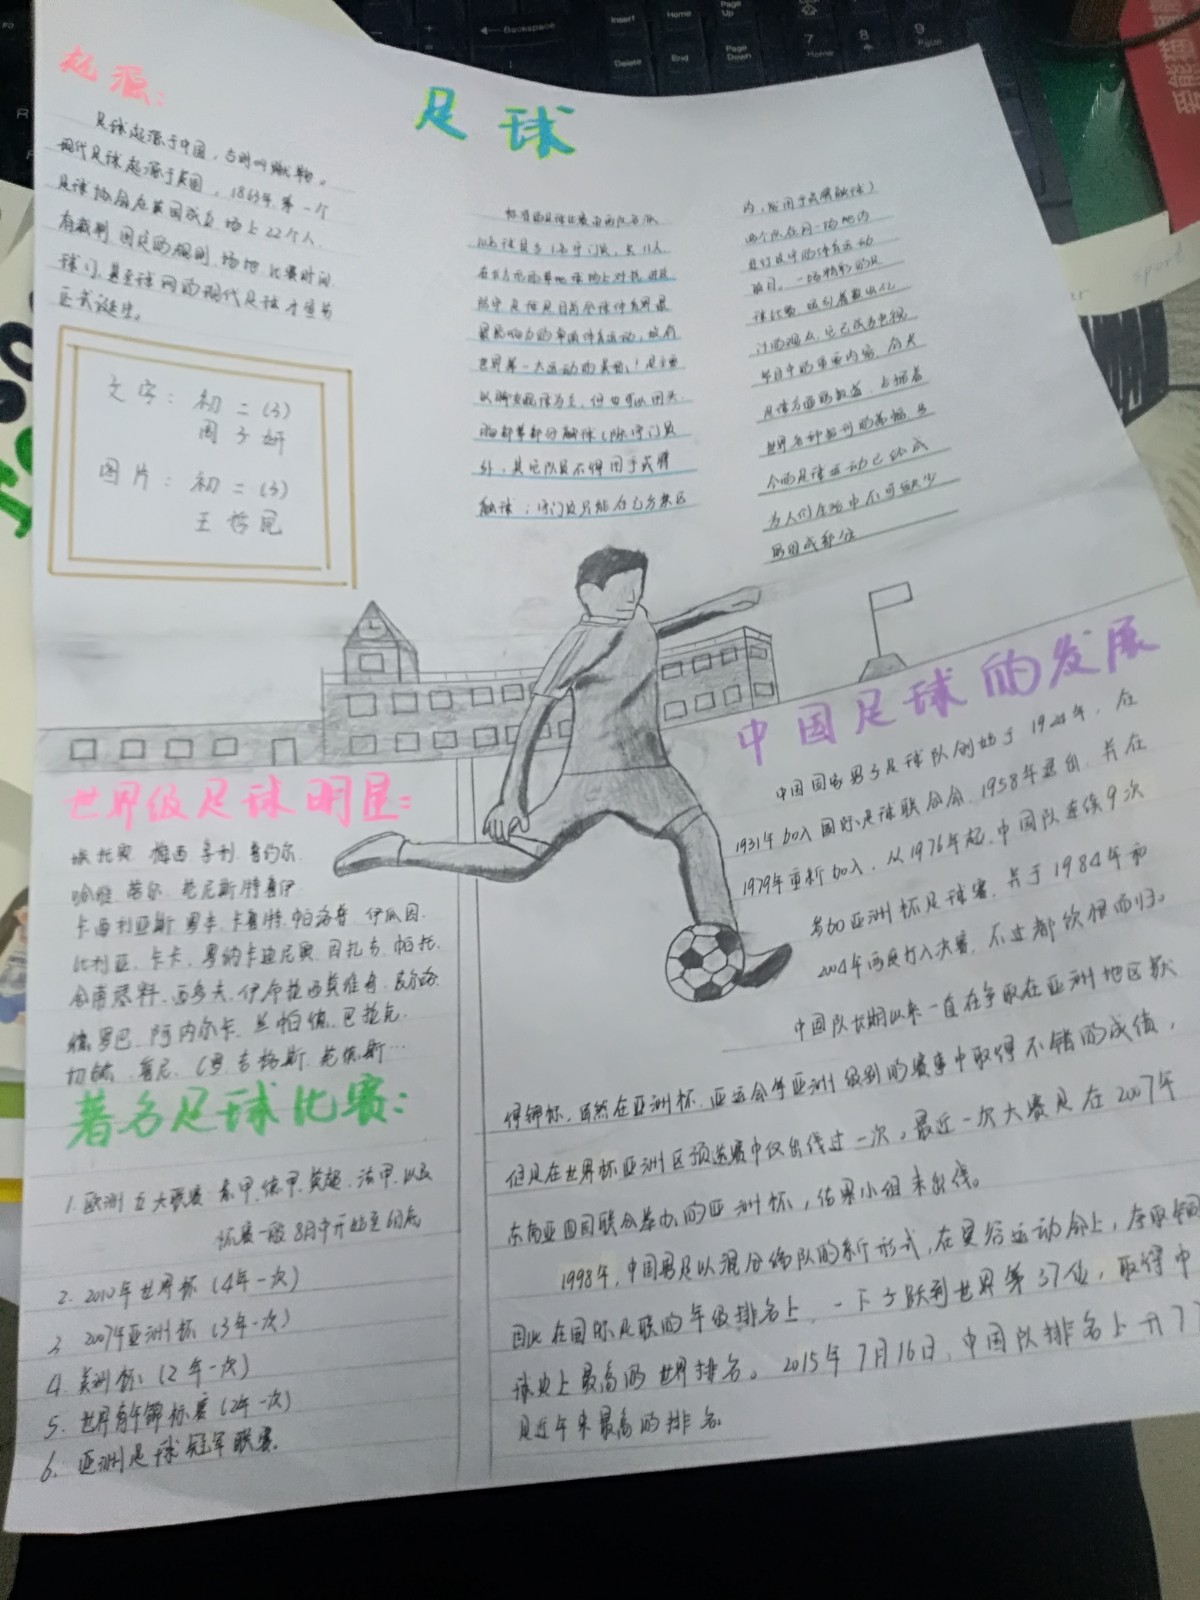 足球
起源：
足球起源于中国，当时叫蹴鞠。
现代足球起源于英国，1863年，第一个
足球协会在英国成立，场上22个人，
有裁判，固定的规则，场地，比赛时间
球门，甚至球网的现代足球才宣告
正式诞生。
文字：初二(3)
周子妍
图片：初二(3)
王哲昆
标准的足球比赛由两队各派
10名球员与1名守门员，共11人，
在长方形的草地球场上对抗、进攻
足球是目前全球体育界最
具影响力的单项体育运动，故有
世界第一大运动的美称！足全要
以脚支配球为主，但也可以用头、
胸部等部分触球（除守门员
外，其它队员不得用手或臂
触球；守门员只能在己方禁区
内，能用手或臂触球）
两个队在同一场地内
进行攻守的体育运动
项目。一场精彩的足
球比赛，吸引着数以亿
计的观众，它已成为电视
节目中的重要内容，有关
足球方面的报道，占据着
世界各种报刊的篇幅，当
今的足球运动已经成
为人们生活中不可缺少
的组成部分
Backspace
Insert
Home
Page Up
Delete
End
Page Down
7
Home
8
9
PgUp
sport
中国足球的发展
中国国家男子足球队创始于1924年，在
1931年加入国际足球联合会，1958年退出，并在
1979年重新加入，从1976年起，中国队连续9次
参加亚洲杯足球赛，并于1984年和
2004年两度打入决赛，不过都饮恨而归。
中国队长期以来一直在争取在亚洲地区获
得锦标，虽然在亚洲杯、亚运会等亚洲级别的赛事中取得不错的成绩，
但是在世界杯亚洲区预选赛中仅出线过一次，最近一次大赛是在2007年
东南亚四国联合举办的亚洲杯，结果小组未出线。
1998年，中国男足以混合编队的新形式，在曼谷运动会上，夺取铜
因此在国际足联的年级排名上，一下子跃到世界第37位，取得中
球史上最高的世界排名。2015年7月16日，中国队排名上升77
是近年来最高的排名
世界级足球明星：
埃托奥 梅西 亨利 鲁约尔
哈维 范尼斯特鲁伊
卡西利亚斯 罗本 卡恩 帕洛普 伊瓜因
比利亚 卡卡 罗纳尔迪尼奥 因扎吉 帕托
舍甫琴科 西多夫 伊布拉西莫维奇
德罗巴 阿内尔卡 兰帕德 巴拉克
切赫 鲁尼 C罗 吉格斯 范德斯…
著名足球比赛：
1. 欧洲五大联赛 意甲、德甲、英超、法甲、以及
联赛一般8月中开始至6月底
2. 2010年世界杯（4年一次）
3. 2007年亚洲杯（3年一次）
4. 美洲杯：（2年一次）
5. 世界青年锦标赛（2年一次）
6. 亚洲足球冠军联赛.